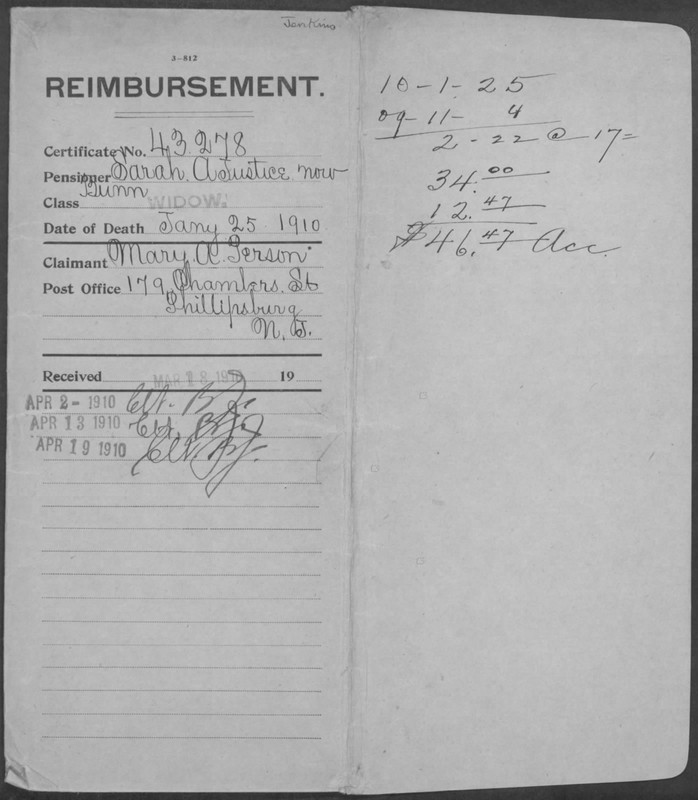 Jenkins
3-812
REIMBURSEMENT.
Certificate No. 43.278
Pensioner Sarah. A Justice now
Bunn
Class WIDOW.
Date of Death Jany 25 1910
Claimant Mary. A. Person
Post Office 179. Chambers. St
Phillipsburg
N. J.
Received MAR 18 1910 19
APR 2- 1910 Clt.
APR 13 1910 Clt.
APR 19 1910 Clt.
10-1-25
09-11-4
2-22 @ 17=
34.00
12.47
$46.47 Acc.